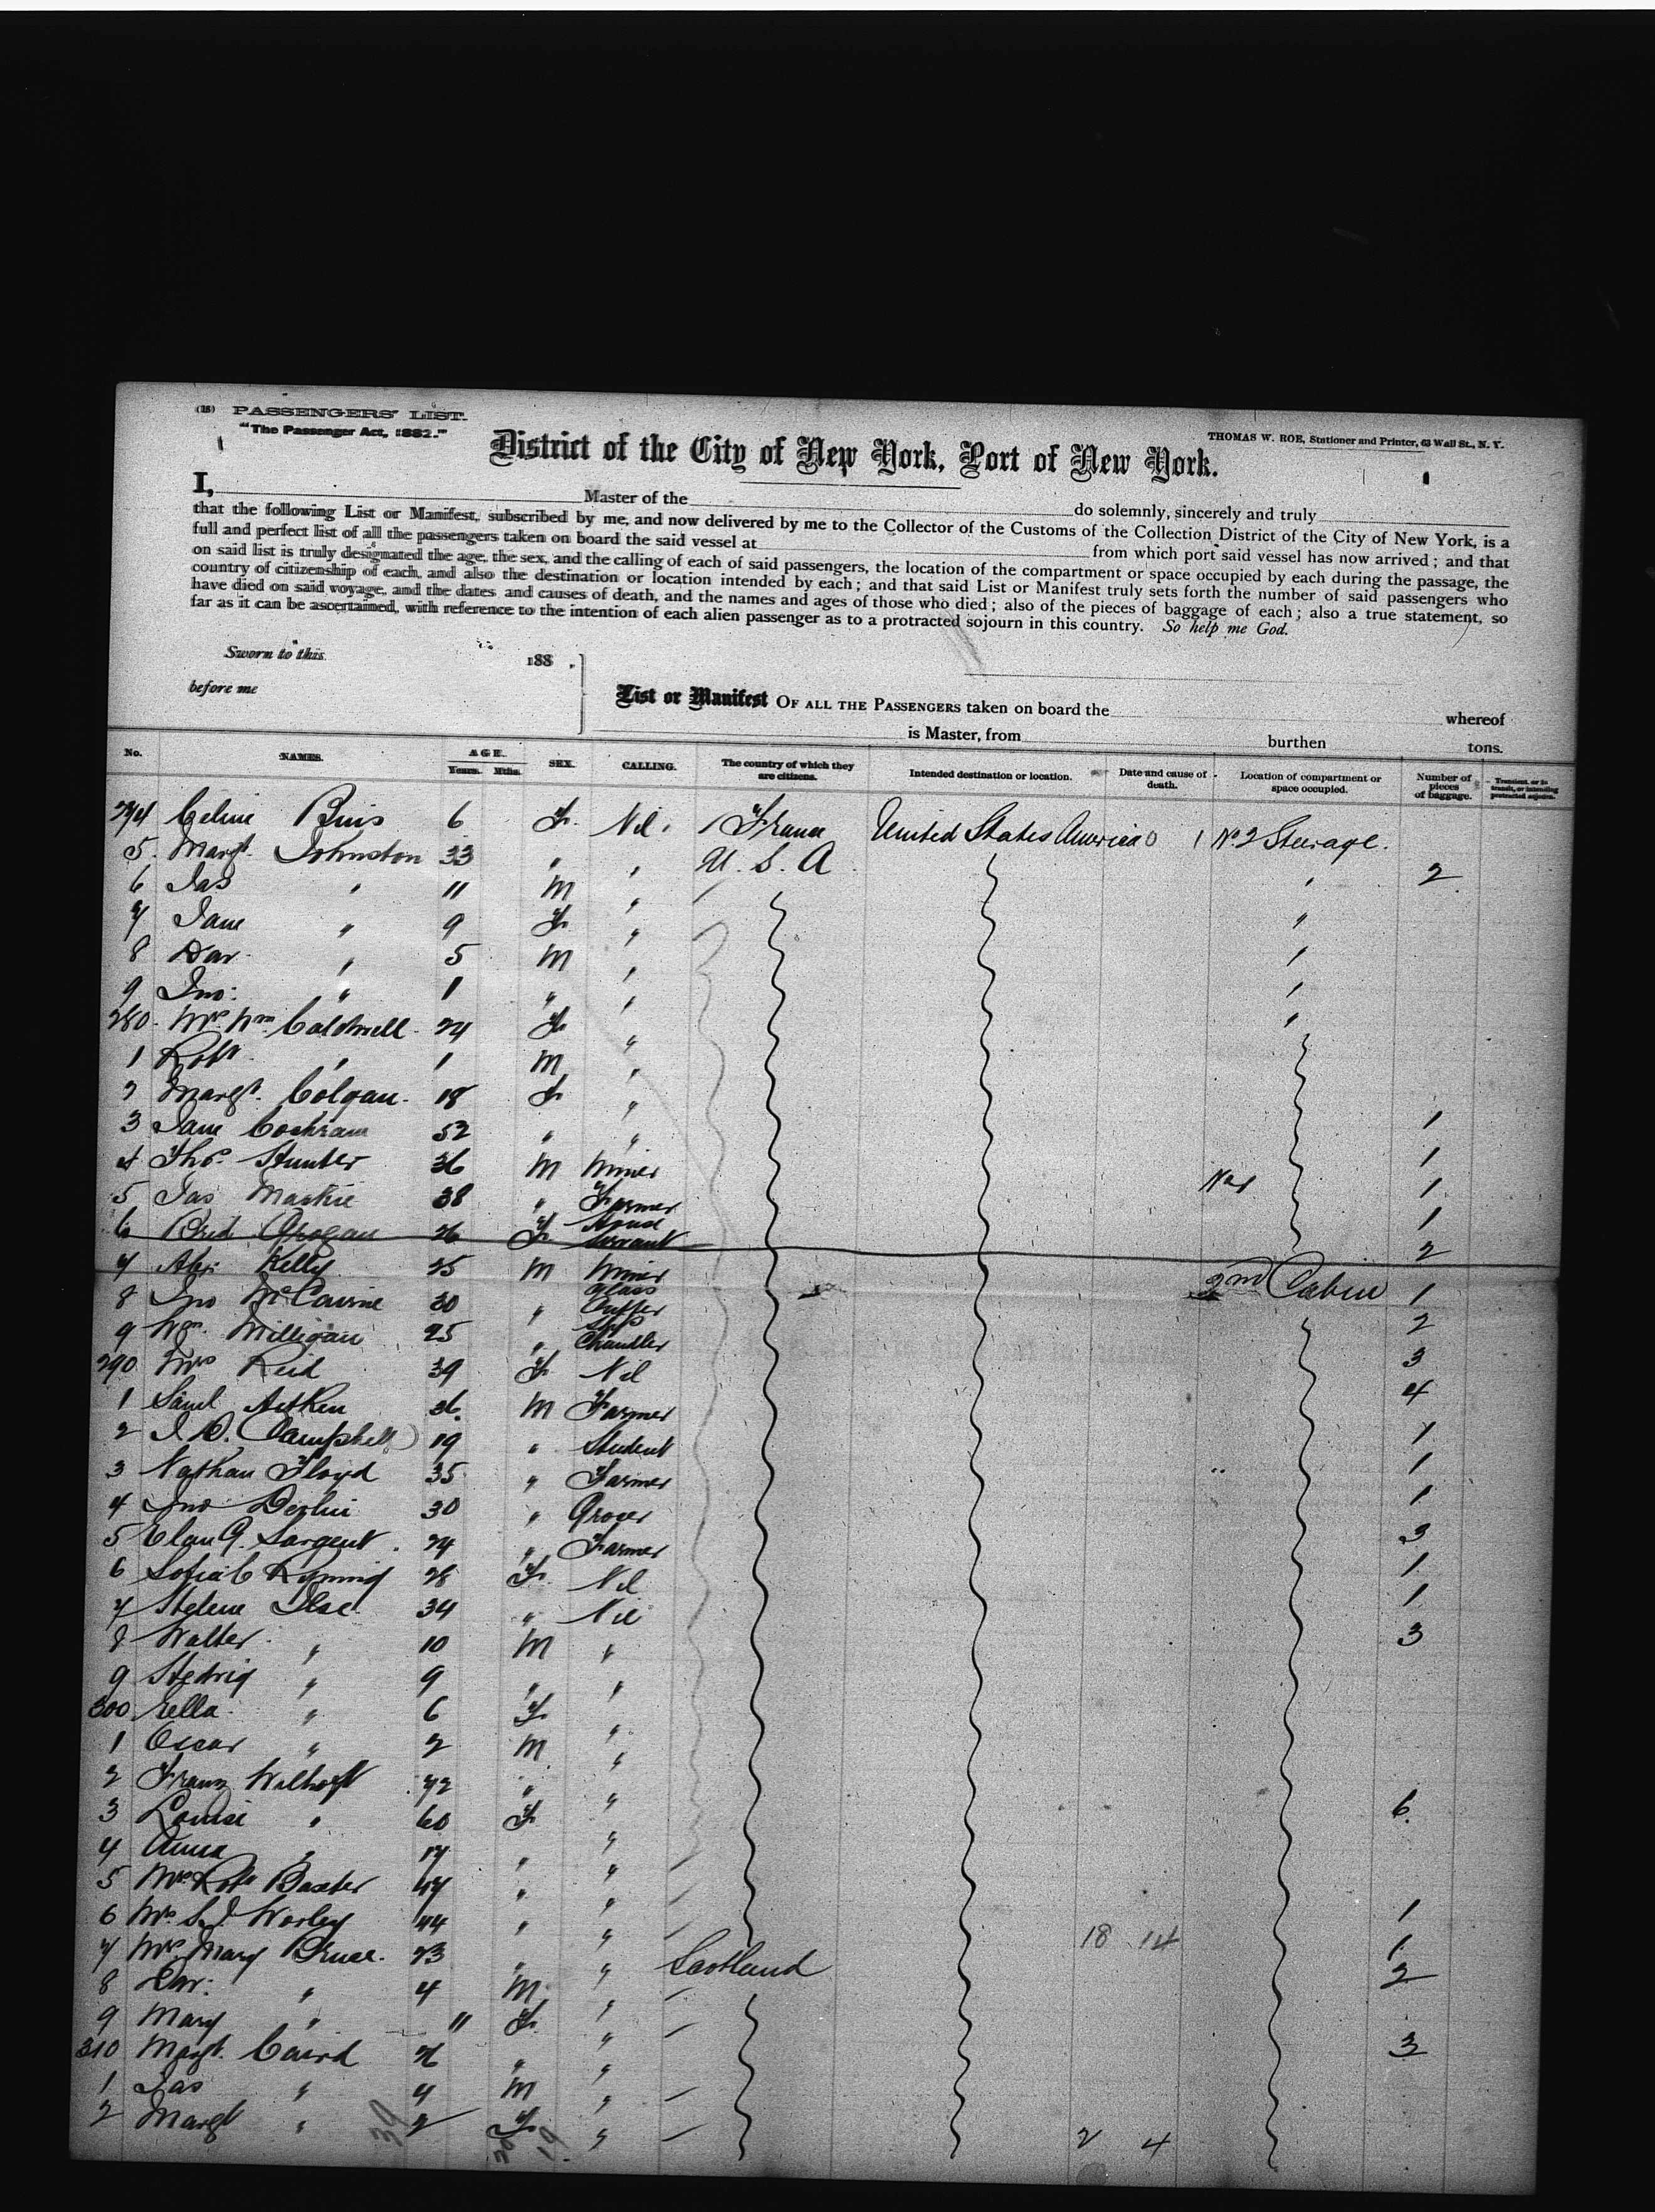 (18) PASSENGERS' LIST.
"The Passenger Act, 1882."
THOMAS W. ROE, Stationer and Printer, 63 Wall St., N. Y.
District of the City of New York, Port of New York.
I, Master of the do solemnly, sincerely and truly
that the following List or Manifest, subscribed by me, and now delivered by me to the Collector of the Customs of the Collection District of the City of New York, is a
full and perfect list of all the passengers taken on board the said vessel at from which port said vessel has now arrived; and that
on said list is truly designated the age, the sex, and the calling of each of said passengers, the location of the compartment or space occupied by each during the passage, the
country of citizenship of each, and also the destination or location intended by each; and that said List or Manifest truly sets forth the number of said passengers who
have died on said voyage, and the dates and causes of death, and the names and ages of those who died; also of the pieces of baggage of each; also a true statement, so
far as it can be ascertained, with reference to the intention of each alien passenger as to a protracted sojourn in this country. So help me God.
Sworn to this 188 .
before me
List or Manifest OF ALL THE PASSENGERS taken on board the whereof
is Master, from burthen tons.
No. NAMES. AGE. Years. Mths. SEX. CALLING. The country of which they are citizens. Intended destination or location. Date and cause of death. Location of compartment or space occupied. Number of pieces of baggage. Transient, or in transit, or intending protracted sojourn.
274 Celine Buis 6 F. Nil. France United States America 0 1 No. 2 Steerage.
5. Margt. Johnston 33 " " U. S. A 2
6 Jas " 11 M " "
7 Jane " 9 F. " "
8 Dav. " 5 M " "
9 Jno: " 1 " " "
280. Mrs. Wm. Caldwell. 24 F. " "
1 Robt. " 1 M "
2 Margt. Colgan. 18 F "
3 Jane Cochrane 52 " " 1
4 Thos. Hunter 36 M Miner 1
5 Jas Mackie 38 " Farmer No 1 1
6 Brid Grogan 26 F. House Servant 1
7 Alex. Kelly 25 M Miner 2
8 Jno 30 " Glass Cutter 2nd Cabin 1
9 Wm. Milligan 25 " Ship Chandler 2
290 Mrs Reid 39 F. Nil 3
1 Saml. Aitken 36. M Farmer 4
2 J. D. Campbell 19 " Student 1
3 Nathan Floyd 35 " Farmer 1
4 Jno Devlin 30 " Grocer 1
5 G. Sargent. 24 " Farmer 3
6 Sofia C 28 F. Nil 1
7 Helene Ilse. 34 " Nil 1
8 Walter. " 10 M " 3
9 Hedwig " 9 " "
300 Ella. " 6 F. "
1 Oscar " 2 M "
2 Franz 72 " "
3 Louise " 60 F. " 6
4 Anna " 17 " "
5 Mrs Robt Baxter 47 " "
6 Mrs. S. J. Worley 44 " " 1
7 Mrs. Mary Bruce. 23 " " Scotland 18 14 1
8 " 4 M. " 2
9 Mary " 11 F. "
310 Margt. Caird 26 " " 3
1 Jas " 4 M "
2 Margt " 2 F. " 2 4
39 20 19